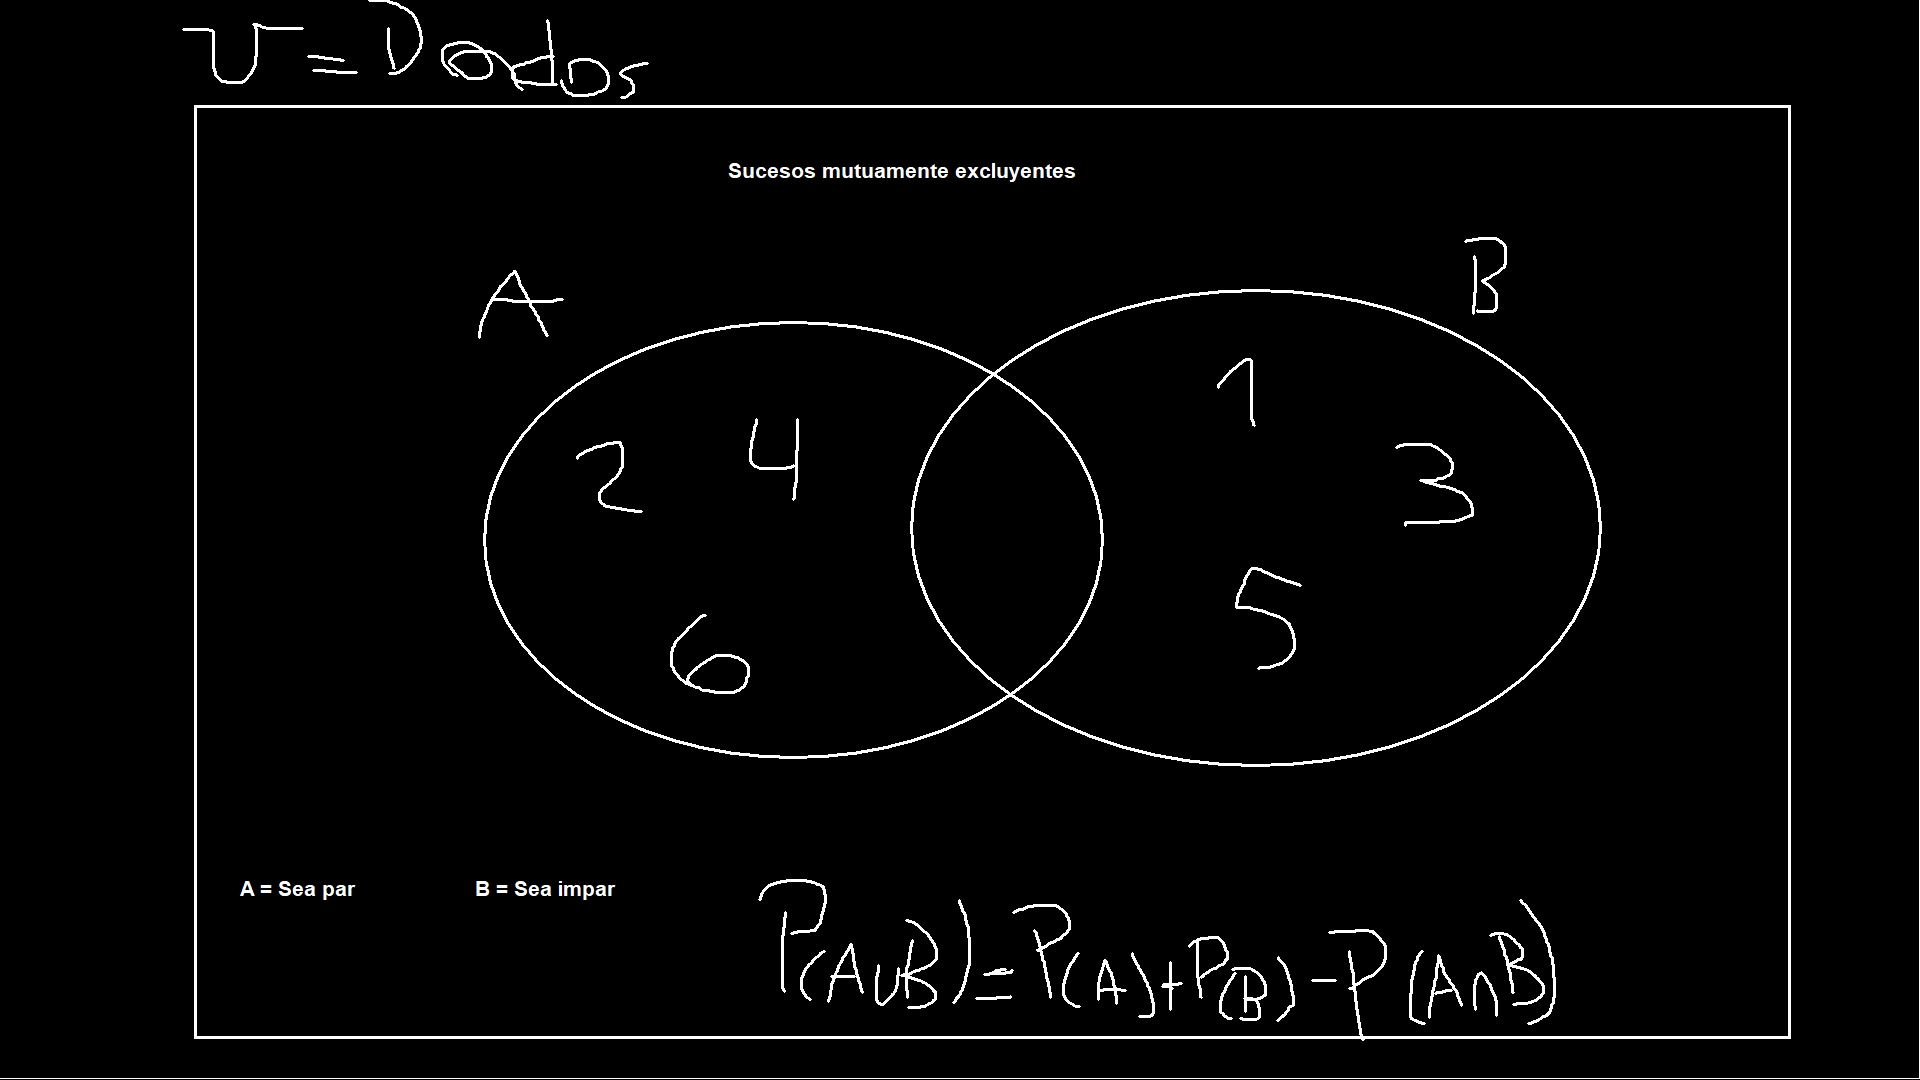 U = Dados
Sucesos mutuamente excluyentes
A
B
1
2 4
3
5
6
A = Sea par B = Sea impar
P(A∪B) = P(A) + P(B) - P(A∩B)